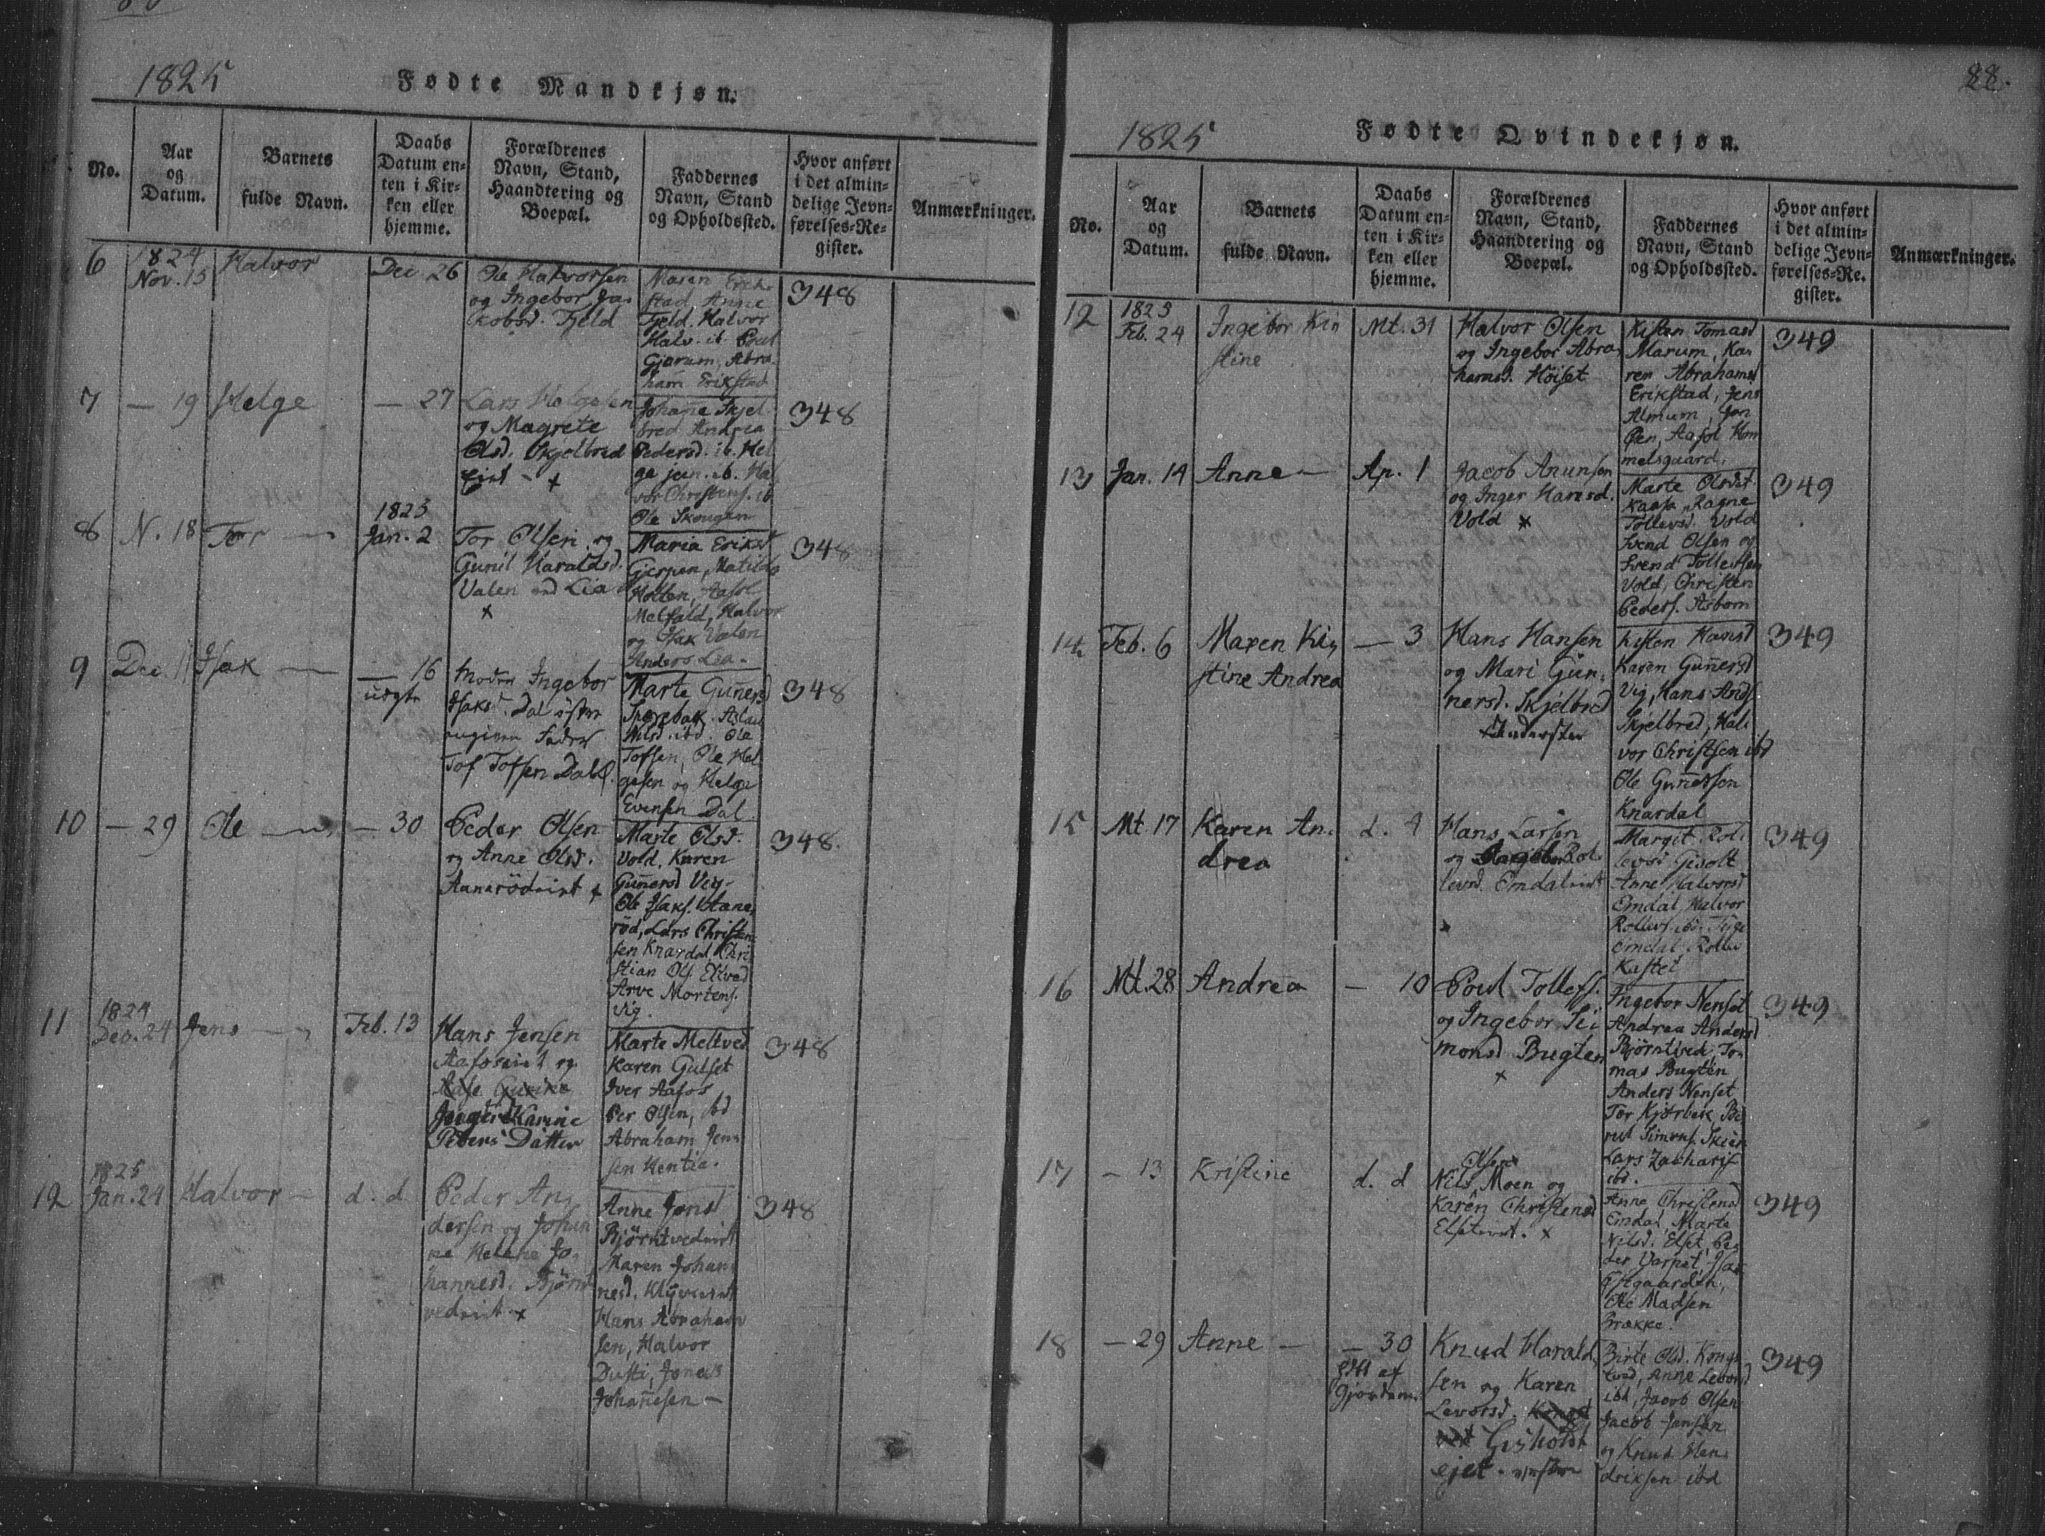 1825
Fødte Mandkjøn.
No.
Aar
og
Datum.
Barnets
fulde Navn.
Daabs
Datum en-
ten i Kir-
ken eller
hjemme.
Forældrenes
Navn, Stand,
Haandtering og
Boepæl.
Faddernes
Navn, Stand
og Opholdssted.
Hvor anført
i det almin-
delige Jevn-
førelses-Re-
gister.
Anmærkninger.
6
1824
Nov. 15
Halvor
Dec 26
Ole Halvorsen
og Ingebor Ja-
kobsd. Fjeld
Maren Erik-
stad, Anne
Fjeld, Halvor
Halv. ib. Poul
Gjerum, Abra-
ham Erikstad
348
7
— 19
Helge
— 27
Lars Helgesen
og Magrete
Olsd. Skjelbred
eiet - +
Johañe Skjel-
bred Andrea
Pedersd. ib. Hel-
ge jun. ib. Hal-
vor Christens. ib
Ole Skougen
348
8
N. 18
Tor
1825
Jan. 2
Tor Olsen og
Gunil Haraldsd.
Valen Lia
+
Maria Erikst
Gjerpen, Matilde
Holten, Aasol
Melfald, Halvor
og Isak Valen
Anders Lia.
348
9
Dec. 11
Isak
— 16
uægte
Moder Ingebor
Isaksd. Dal østre
angiven Fader
Tof Tofsen Dal
Marte Guñersd
Sperebak. Aslau
Nilsd. ibd. Ole
Tofsen, Ole Hel-
gesen og Helge
Evensen Dal
348
10
— 29
Ole
— 30
Peder Olsen
og Anne Olsd.
Aanerødeiet +
Marte Olsd.
Vold, Karen
Guñersd Vig-
Ole Isaks. Aane-
rød, Lars Christen-
sen Knardal, Chri-
stian Ols
Arve Mortens.
Vig.
348
11
1824
Dec. 24
Jens
Feb. 13
Hans Jensen
Aafoseiet og
Karine
Peders Datter
Marte Meltved
Karen Gulset
Iver Aafos
Per Olsen, ibd
Abraham Jen-
sen Kentia.
348
12
1825
Jan. 24
Halvor
d. d
Peder An-
dersen og Johan-
ne Helene Jo-
hannesd. Bjørnt-
vedeiet +
Anne Jonsd
Bjørntvedeiet
Maren Johan-
nesd. Klyveeiet
Hans Abraham-
sen, Halvor
Dusti, Jonas
Johañesen —
348
88.
1825
Fødte Qvindekjøn.
No.
Aar
og
Datum.
Barnets
fulde Navn.
Daabs
Datum en-
ten i Kir-
ken eller
hjemme.
Forældrenes
Navn, Stand,
Haandtering og
Boepæl.
Faddernes
Navn, Stand
og Opholdssted.
Hvor anført
i det almin-
delige Jevn-
førelses-Re-
gister.
Anmærkninger.
12
1825
Feb. 24
Ingebor Kir
stine
Mt. 31
Halvor Olsen
og Ingebor Abra-
hamsd. Høiset
Kisten Tomasd
Marum, Ka-
ren Abrahamsd
Erikstad, Jens
Almum, Jon
Øen, Aasol Hom
melsgaard.
349
13
Jan. 14
Anne —
Ap. 1
Jacob Anunsen
og Inger Haresd.
Vold +
Marte Olsdt
Kaasa, Ragne
Tollevsd. Vold
Svend Olsen og
Svend Tollefsen
Vold, Christen
Peders. Asbom
349
14
Feb. 6
Maren Kir
stine Andrea
— 3
Hans Hansen
og Mari Gun-
nersd. Skjelbred
Kisten Hansd
Karen Guñersd
Vig, Hans Ands.
Skjelbred, Hal-
vor Christsen ibd
Ole Guñersen
Knardal
349
15
Mt. 17
Karen An-
drea
d. 4
Hans Larsen
og Ingebor Rol-
levsd. Emdaleiet
+
Margit Rol-
levsd Gisolt
Anne Halvorsd
Emdal Halvor
Rollevs. ibd.
Emdal. Rollev
Kastet
349
16
Mt. 28
Andrea
— 10
Poul Tollefs.
og Ingebor Sei
monsd Bugten
+
Ingebor Nenset
Andrea Andersd
Bjørntvedt, To-
mas Bugten
Anders Nenset
Tor Kjørbek Be-
rut Simons. Skien
Lars Zacharis
ibd.
349
17
— 13
Kristine
d. d
Olsen
Nils Moen og
Karen Christensd
Elseteiet. +
Anne Christensd
Emdal, Marte
Nilsd. Elset, Pe-
der Vorpet, Isak
Ole Madsen
Brække.
349
18
— 29
Anne —
— 30
af
Gjordem.
Knud Harald-
sen og Karen
Levorsd.
Gisholdt
ejet.
Birte Olsd. Kongs
tved, Anne Levorsd
ibd, Jacob Olsen
Jacob Jansen
og Knud Hen-
driksen ibd
349